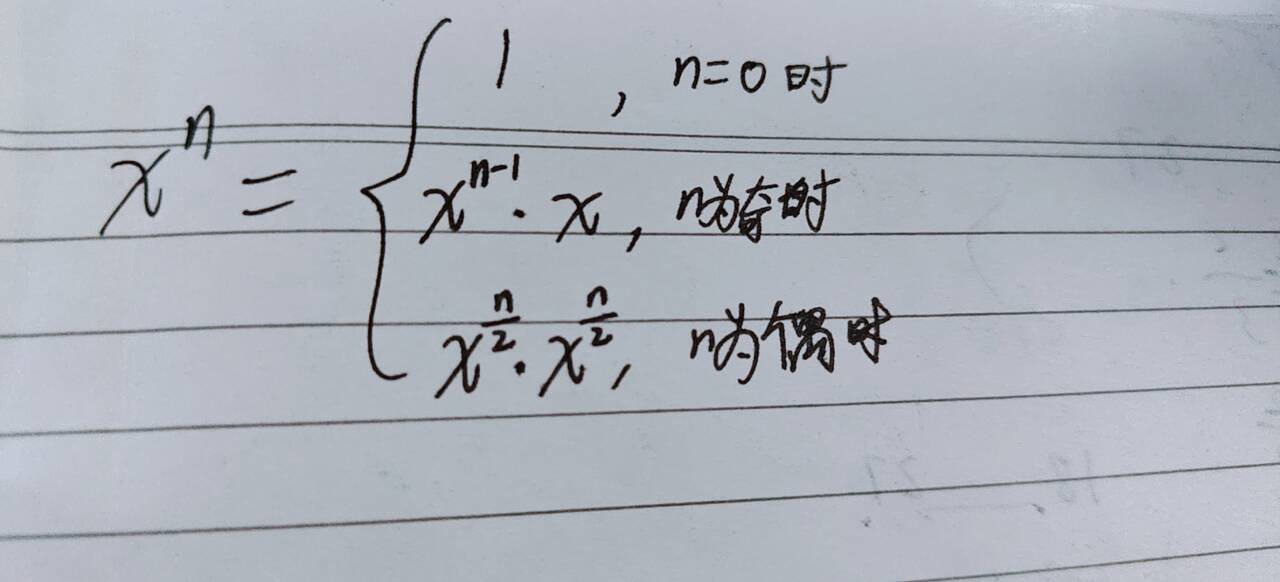 xⁿ = { 1 , n=0 时
xⁿ⁻¹ · x , n为奇时
x^(n/2) · x^(n/2) , n为偶时